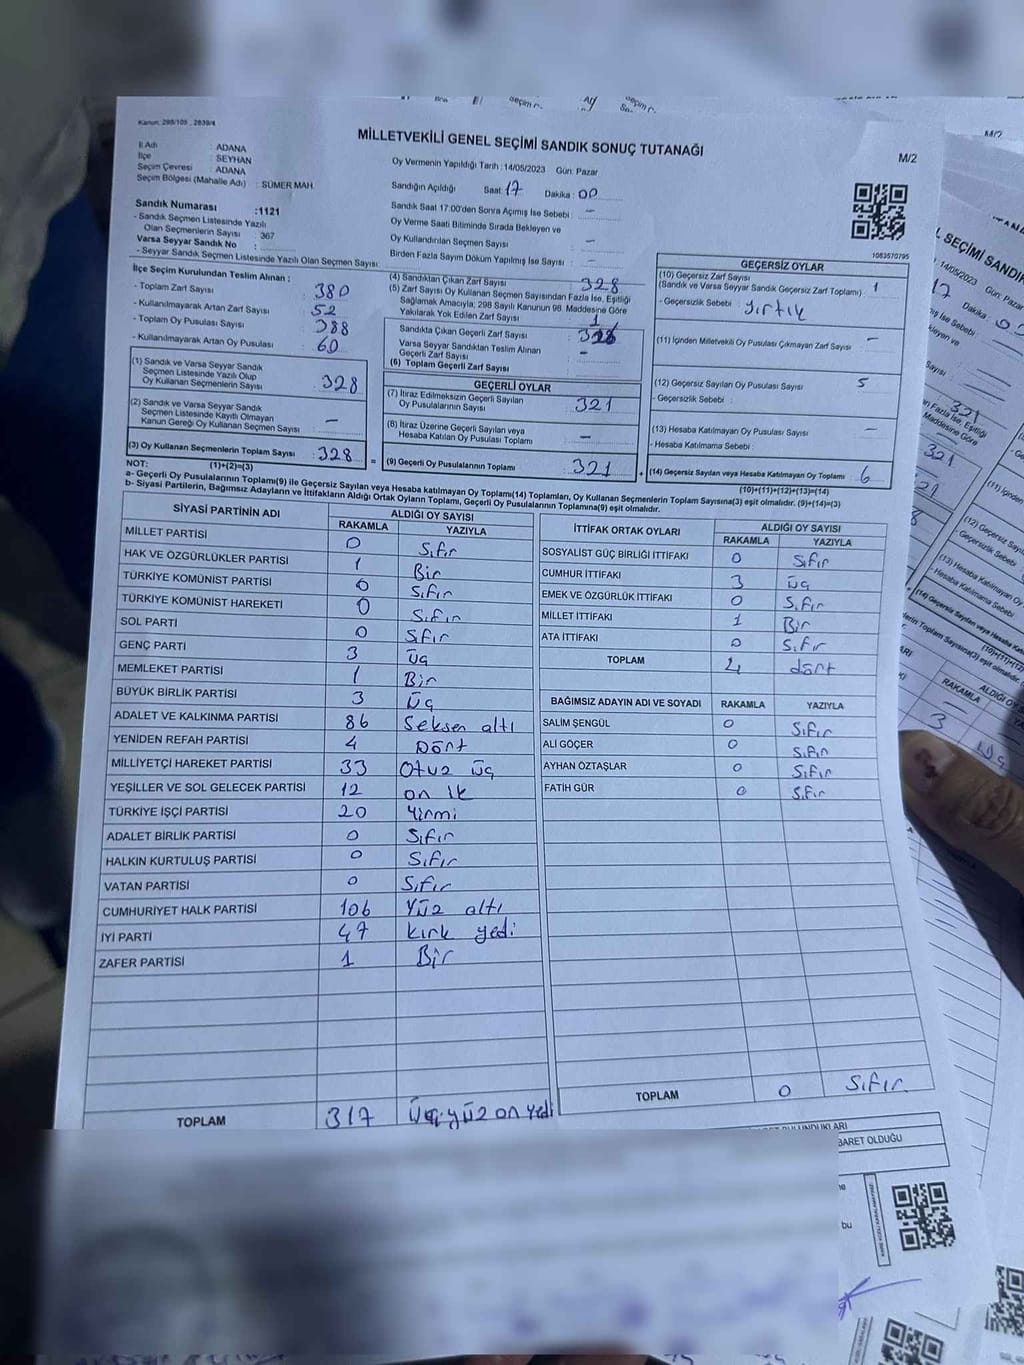 Kanun: 298/105 , 2839/4
MİLLETVEKİLİ GENEL SEÇİMİ SANDIK SONUÇ TUTANAĞI
M/2
İl Adı : ADANA
İlçe : SEYHAN
Seçim Çevresi : ADANA
Seçim Bölgesi (Mahalle Adı) : SÜMER MAH.
Oy Vermenin Yapıldığı Tarih : 14/05/2023 Gün: Pazar
Sandığın Açıldığı Saat: 17 Dakika : 00
Sandık Saat 17:00'den Sonra Açımış İse Sebebi : -
Oy Verme Saati Bitiminde Sırada Bekleyen ve
Oy Kullandırılan Seçmen Sayısı : -
Birden Fazla Sayım Döküm Yapılmış İse Sayısı : -
Sandık Numarası :1121
- Sandık Seçmen Listesinde Yazılı
Olan Seçmenlerin Sayısı : 367
Varsa Seyyar Sandık No :
- Seyyar Sandık Seçmen Listesinde Yazılı Olan Seçmen Sayısı:
1083570795
İlçe Seçim Kurulundan Teslim Alınan ;
- Toplam Zarf Sayısı : 380
- Kullanılmayarak Artan Zarf Sayısı : 52
- Toplam Oy Pusulası Sayısı : 388
- Kullanılmayarak Artan Oy Pusulası : 60
(1) Sandık ve Varsa Seyyar Sandık
Seçmen Listesinde Yazılı Olup
Oy Kullanan Seçmenlerin Sayısı : 328
(2) Sandık ve Varsa Seyyar Sandık
Seçmen Listesinde Kayıtlı Olmayan
Kanun Gereği Oy Kullanan Seçmen Sayısı : -
(3) Oy Kullanan Seçmenlerin Toplam Sayısı : 328
(1)+(2)=(3)
(4) Sandıktan Çıkan Zarf Sayısı : 328
(5) Zarf Sayısı Oy Kullanan Seçmen Sayısından Fazla İse, Eşitliği
Sağlamak Amacıyla; 298 Sayılı Kanunun 98. Maddesine Göre
Yakılarak Yok Edilen Zarf Sayısı : 1
Sandıkta Çıkan Geçerli Zarf Sayısı :
Varsa Seyyar Sandıktan Teslim Alınan
Geçerli Zarf Sayısı : -
(6) Toplam Geçerli Zarf Sayısı :
GEÇERLİ OYLAR
(7) İtiraz Edilmeksizin Geçerli Sayılan
Oy Pusulalarının Sayısı : 321
(8) İtiraz Üzerine Geçerli Sayılan veya
Hesaba Katılan Oy Pusulası Toplamı : -
= (9) Geçerli Oy Pusulalarının Toplamı : 321
GEÇERSİZ OYLAR
(10) Geçersiz Zarf Sayısı
(Sandık ve Varsa Seyyar Sandık Geçersiz Zarf Toplamı) : 1
- Geçersizlik Sebebi : yırtık
(11) İçinden Milletvekili Oy Pusulası Çıkmayan Zarf Sayısı : -
(12) Geçersiz Sayılan Oy Pusulası Sayısı : 5
- Geçersizlik Sebebi :
(13) Hesaba Katılmayan Oy Pusulası Sayısı : -
- Hesaba Katılmama Sebebi :
+ (14) Geçersiz Sayılan veya Hesaba Katılmayan Oy Toplamı : 6
(10)+(11)+(12)+(13)=(14)
NOT:
a- Geçerli Oy Pusulalarının Toplamı(9) ile Geçersiz Sayılan veya Hesaba katılmayan Oy Toplamı(14) Toplamları, Oy Kullanan Seçmenlerin Toplam Sayısına(3) eşit olmalıdır. (9)+(14)=(3)
b- Siyasi Partilerin, Bağımsız Adayların ve İttifakların Aldığı Ortak Oyların Toplamı, Geçerli Oy Pusulalarının Toplamına(9) eşit olmalıdır.
SİYASİ PARTİNİN ADI ALDIĞI OY SAYISI
RAKAMLA YAZIYLA
MİLLET PARTİSİ 0 Sıfır
HAK VE ÖZGÜRLÜKLER PARTİSİ 1 Bir
TÜRKİYE KOMÜNİST PARTİSİ 0 Sıfır
TÜRKİYE KOMÜNİST HAREKETİ 0 Sıfır
SOL PARTİ 0 Sıfır
GENÇ PARTİ 3 üç
MEMLEKET PARTİSİ 1 Bir
BÜYÜK BİRLİK PARTİSİ 3 üç
ADALET VE KALKINMA PARTİSİ 86 Seksen altı
YENİDEN REFAH PARTİSİ 4 Dört
MİLLİYETÇİ HAREKET PARTİSİ 33 Otuz üç
YEŞİLLER VE SOL GELECEK PARTİSİ 12 on ik
TÜRKİYE İŞÇİ PARTİSİ 20 Yirmi
ADALET BİRLİK PARTİSİ 0 Sıfır
HALKIN KURTULUŞ PARTİSİ 0 Sıfır
VATAN PARTİSİ 0 Sıfır
CUMHURİYET HALK PARTİSİ 106 Yüz altı
İYİ PARTİ 47 kırk yedi
ZAFER PARTİSİ 1 Bir
TOPLAM 317 üçyüz on yedi
İTTİFAK ORTAK OYLARI ALDIĞI OY SAYISI
RAKAMLA YAZIYLA
SOSYALİST GÜÇ BİRLİĞİ İTTİFAKI 0 Sıfır
CUMHUR İTTİFAKI 3 üç
EMEK VE ÖZGÜRLÜK İTTİFAKI 0 Sıfır
MİLLET İTTİFAKI 1 Bir
ATA İTTİFAKI 0 Sıfır
TOPLAM 4 dört
BAĞIMSIZ ADAYIN ADI VE SOYADI RAKAMLA YAZIYLA
SALİM ŞENGÜL 0 Sıfır
ALİ GÖÇER 0 Sıfır
AYHAN ÖZTAŞLAR 0 Sıfır
FATİH GÜR 0 Sıfır
TOPLAM 0 Sıfır
BARET OLDUĞU
bu